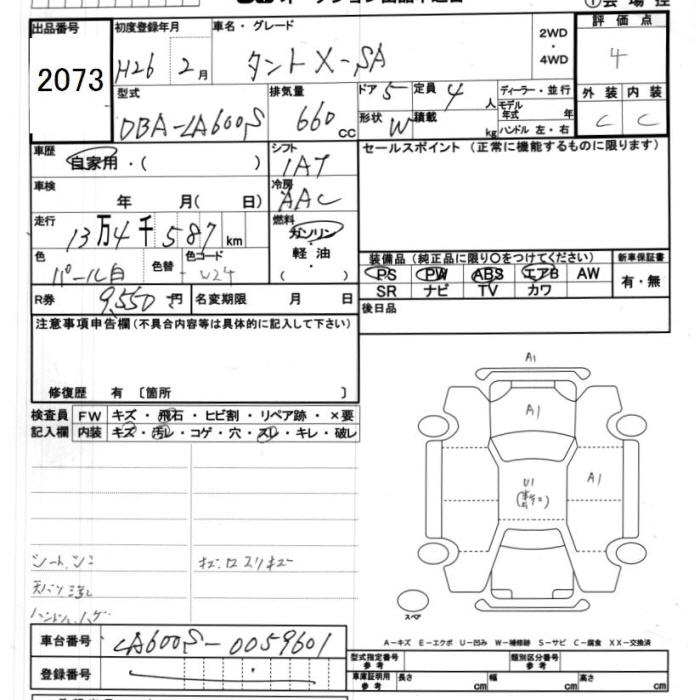 オークション出品申込書
①会場控
出品番号 初度登録年月 車名・グレード 2WD・4WD 評価点
2073 H26 2月 タント X-SA 4
型式 排気量 ドア 5 定員 4人 ディーラー・並行 外装 内装
DBA-LA600S 660cc 形状 W 積載 kg モデル年式 年 ハンドル 左・右 C C
車歴 自家用・( ) シフト IAT セールスポイント (正常に機能するものに限ります)
車検 年 月( 日) 冷房 AAC
走行 13万4千587km 燃料 ガソリン・軽油・( )
色 パール白 色替 色コード W24
装備品 (純正品に限り○をつけてください) 新車保証書
PS PW ABS エアB AW 有・無
SR ナビ TV カワ
R券 9,550円 名変期限 月 日 後日品
注意事項申告欄 (不具合内容等は具体的に記入して下さい)
修復歴 有 〔箇所 〕
検査員 FW キズ・飛石・ヒビ割・リペア跡・×要
記入欄 内装 キズ・汚レ・コゲ・穴・スレ・キレ・破レ
A1
A1
A1
U1
シート シミ
天バリ 汚レ
ハンドル ハゲ
スペア
A-キズ E-エクボ U-凹み W-補修跡 S-サビ C-腐食 XX-交換済
車台番号 LA600S-0059601
型式指定番号 参考 類別区分番号 参考
登録番号
車庫証明用 参考 長さ cm 幅 cm 高さ cm